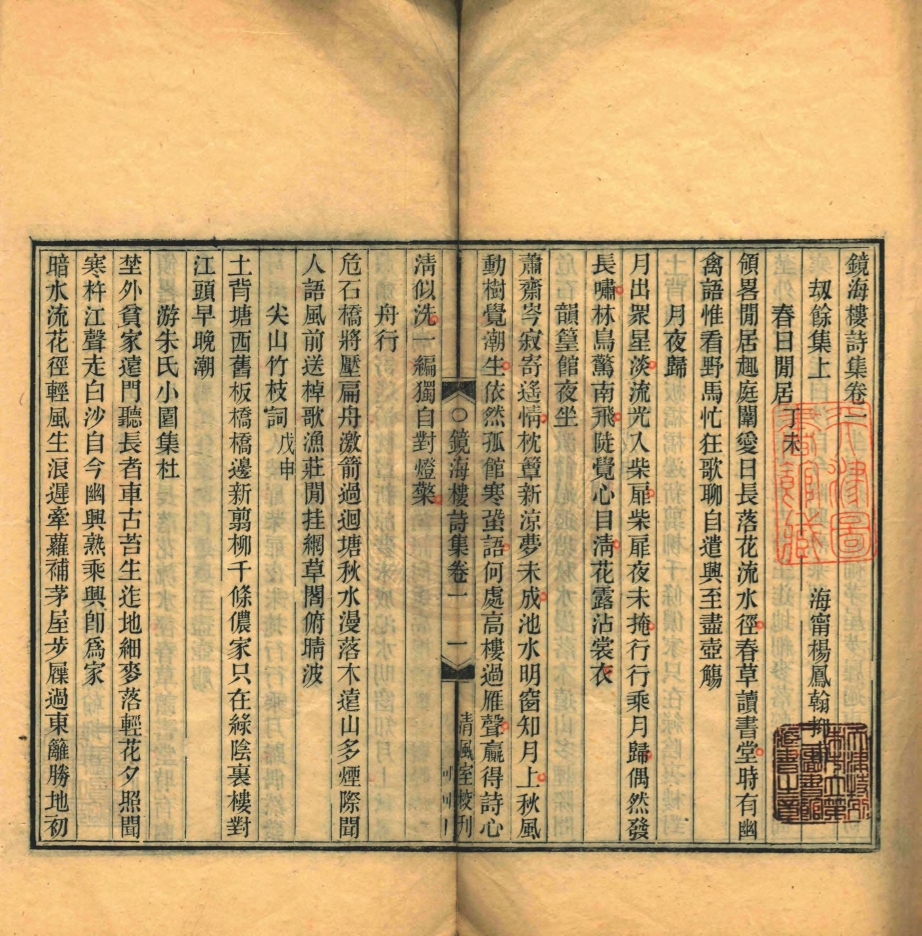 鏡海樓詩集卷一
刼餘集上
海甯楊鳳翰
春日閒居丁未
領畧閒居趣庭闈愛日長落花流水徑春草讀書堂時有幽
禽語惟看野馬忙狂歌聊自遣興至盡壺觴
月夜歸
月出眾星淡流光入柴扉柴扉夜未掩行行乘月歸偶然發
長嘯林鳥驚南飛陡覺心目淸花露沾裳衣
韻篁館夜坐
蕭齋岑寂寄遙情枕簟新涼夢未成池水明窗知月上秋風
動樹覺潮生依然孤館寒蛩語何處高樓過雁聲贏得詩心
淸似洗一編獨自對燈檠
鏡海樓詩集卷一
一
清風室校刊
舟行
危石橋將壓扁舟激箭過迴塘秋水漫落木遠山多煙際聞
人語風前送棹歌漁莊閒挂網草閣俯晴波
尖山竹枝詞戊申
土背塘西舊板橋橋邊新翦柳千條儂家只在綠陰裏樓對
江頭早晚潮
游朱氏小園集杜
埜外貧家遠門聽長者車古苔生迮地細麥落輕花夕照聞
寒杵江聲走白沙自今幽興熟乘興卽爲家
暗水流花徑輕風生浪遲牽蘿補茅屋步屧過東籬勝地初